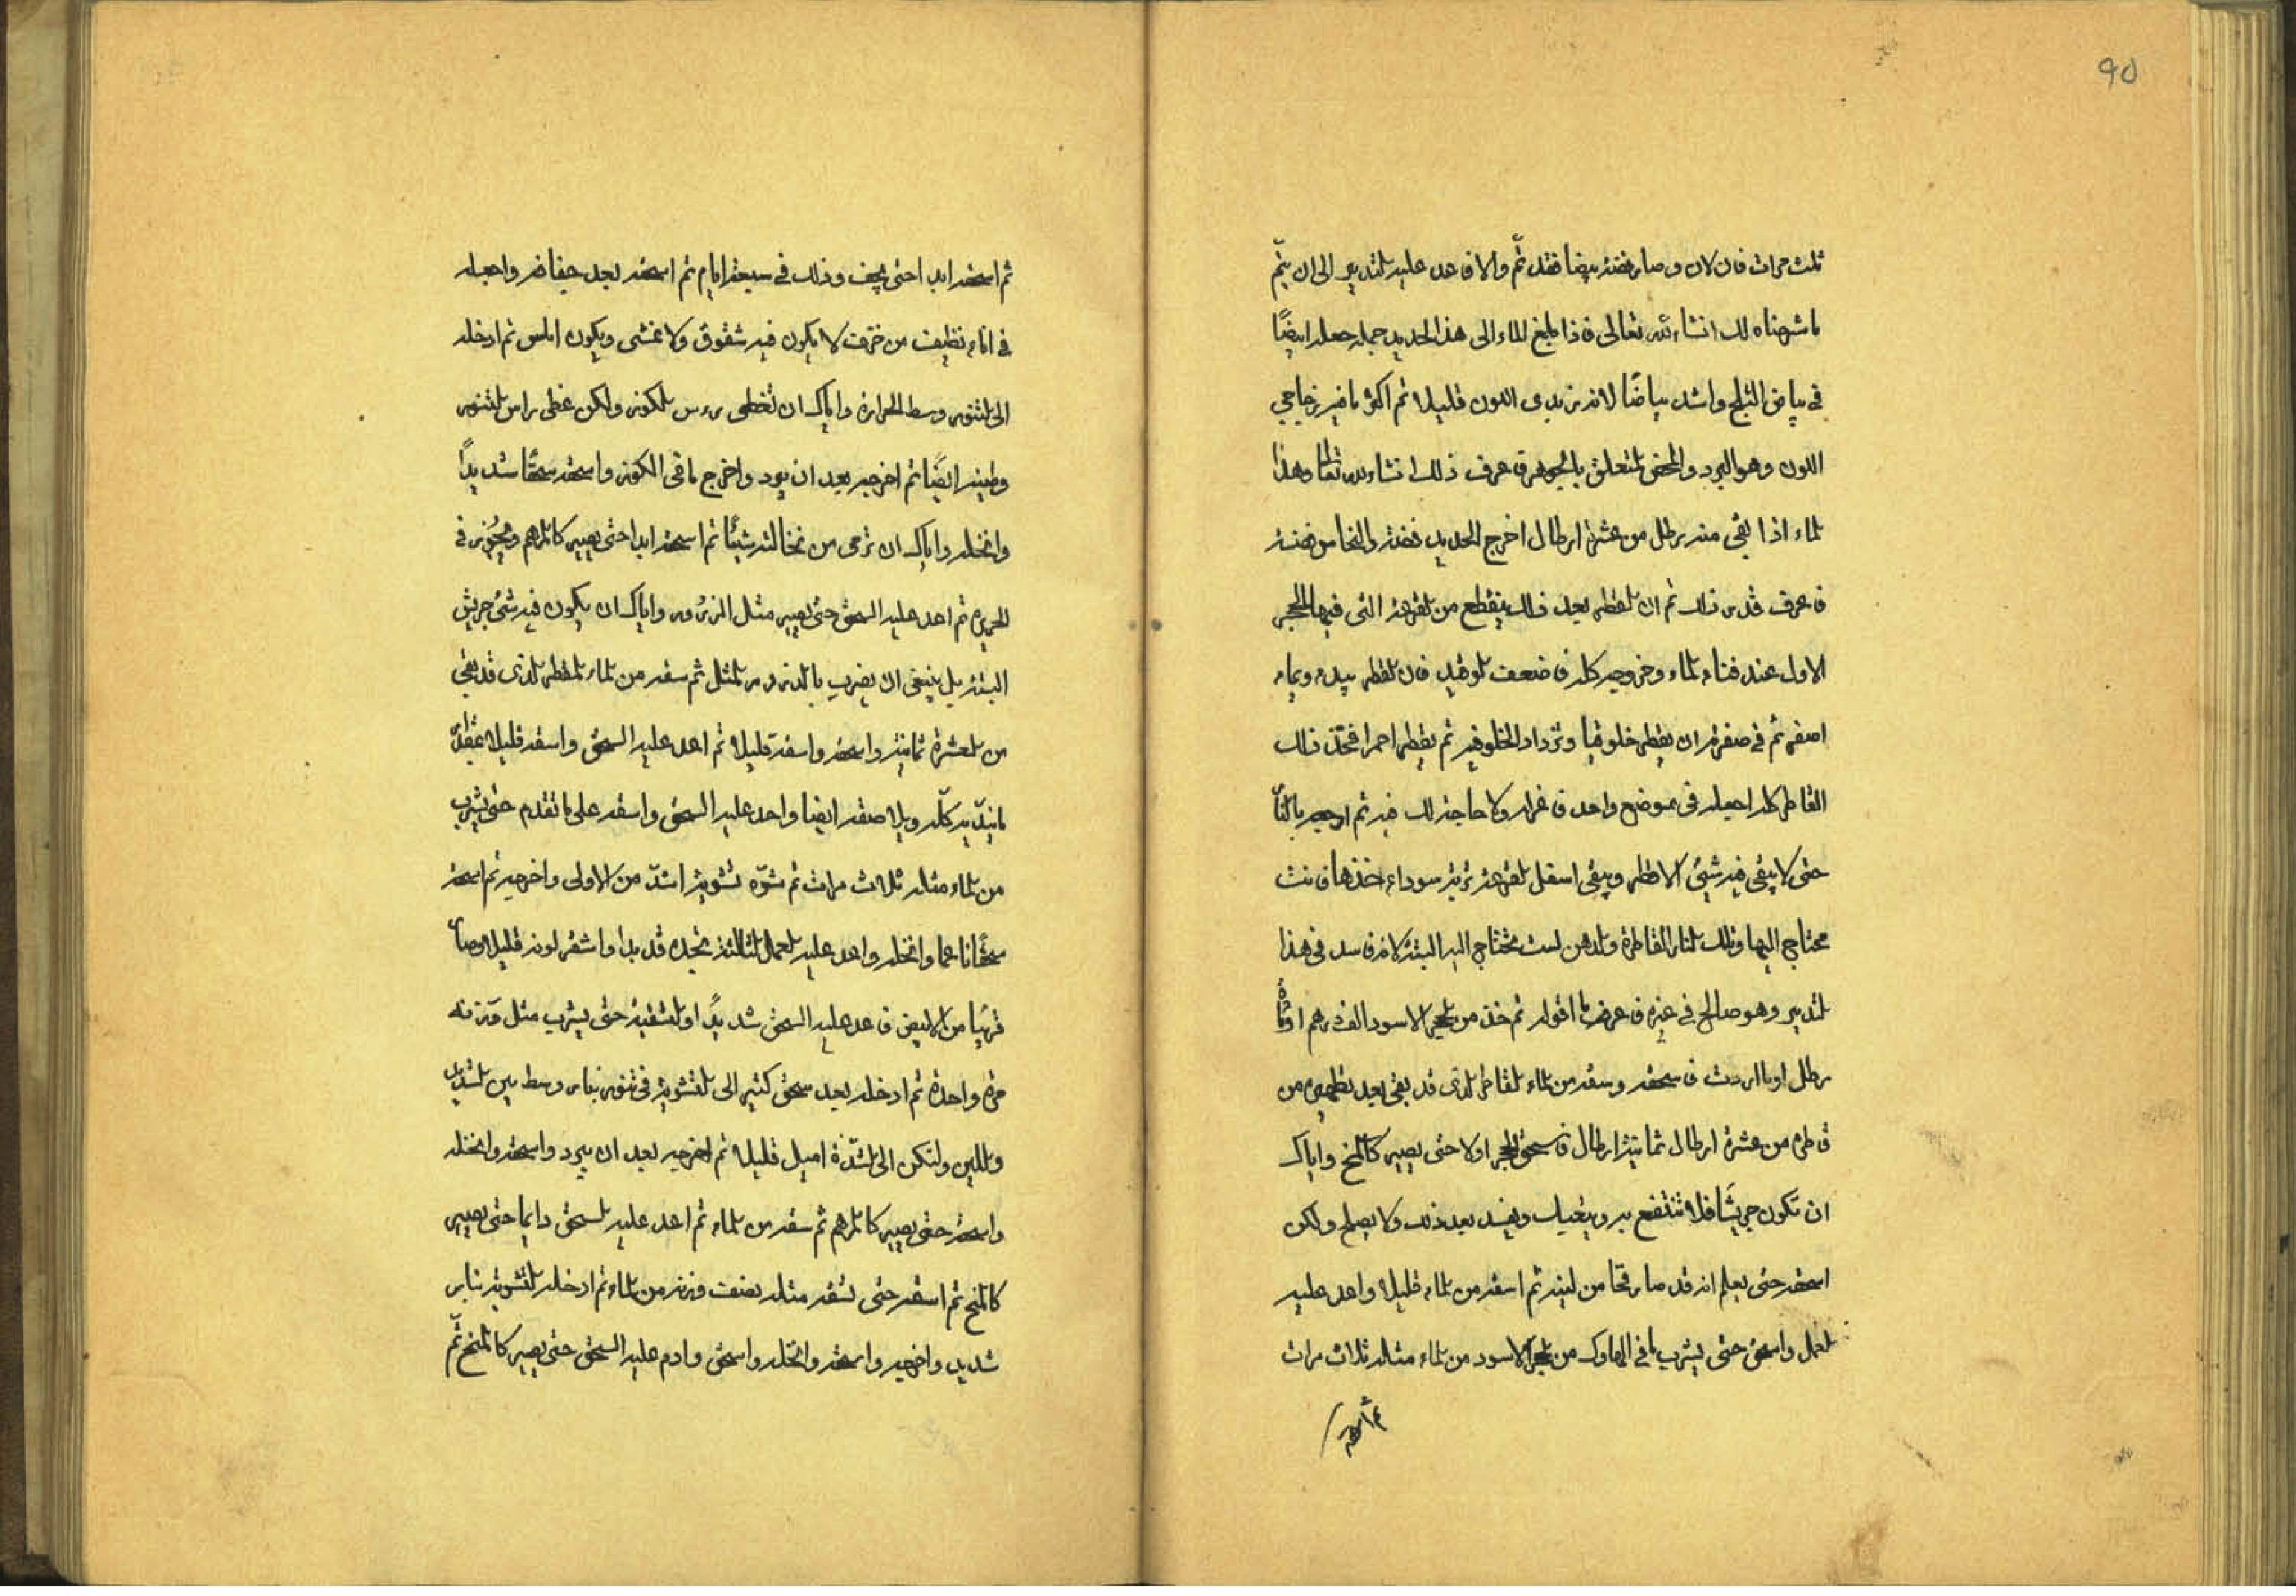 90
ثلث مرات فان لان وصار فضة بيضا فقد تم والا فاعد عليه التدبير الى ان يتم
ما شرحناه لك انشاء الله تعالى فاذا بلغ الماء الى هذا الحديد جمله جعله ايضًا
في بياض الثلج واشد بياضًا لانه يزيد في اللون قليلا ثم اكثر ما فيه زجاجي
اللون وهو البرد والمخ المتعلق بالجوهر فاعرف ذلك انشاء الله تعالى وهذا
الماء اذا بقى منه رطل من عشرة ارطال اخرج الحديد فضة والنحاس فضة
فاعرف قدر ذلك ثم ان القطر بعد ذلك ينقطع من القرعة التى فيها الحجر
الاول عند فناء الماء وخروجه كله فاضعف الوقيد فان القطر يبدء وماء
اصفر ثم في صفرة ان يقطر خلوقيا وتزداد الخلوقيه ثم يقطر احمر فخذ ذلك
القاطر كله اجعله فى موضع واحد فاعزله ولا حاجة لك فيه ثم ارجه بالنار
حتى لا يبقى فيه شيئ الا قطر ويبقى اسفل القرعة تربة سوداء خذها فانت
محتاج اليها وتلك النار القاطرة والدهن لست تحتاج اليه البتة لانه فاسد فى هذا
التدبير وهو صالح في غيره فاعرف ما اقوله ثم خذ من الحجر الاسود الف درهم او مأة
رطل او ما اردت فاسحقه وسقه من الماء القاطر الذى قد بقى بعد تطهيره من
قاطره من عشرة ارطال ثمانية ارطال فاسحق الحجر اولا حتى يصير كالمخ واياك
ان تكون جريشًا فلا تنتفع به ويتعبك ويفسد بعد ذلك ولا يصلح ولكن
اسحقه حتى يعلم انه قد صار مخا من لينه ثم اسقه من الماء قليلا واعد عليه
العمل واسحق حتى يشرب ما في الهاوك من الحجر الاسود من الماء مثله ثلاث مرات
ثم اسحقه
ثم اسحقه ابدا حتى يجف وذلك في سبعة ايام ثم اسحقه بعد جفافه واجعله
في اناء نظيف من خزف لا يكون فيه شقوق ولا غشى ويكون املس ثم ادخله
الى التنور وسط الحرارة واياك ان تغطى رءس الكوز ولكن غطى راس التنور
وطينه ايضًا ثم اخرجه بعد ان يبرد واخرج ما فى الكوز واسحقه سحقا شديدًا
وانخله واياك ان ترمى من نخالته شيئًا ثم اسحقه ابدا حتى يصير كالمرهم ويجوز في
الحريرة ثم اعد عليه السحق حتى يصير مثل الذرور واياك ان يكون فيه شئ جريش
البتة بل ينبغى ان يضرب بالذرور المثل ثم سقه من الماء المقطر الذى قد بقى
من العشرة ثمانية واسحقه واسقه قليلا ثم اعد عليه السحق واسقه قليلا
ما تدبر كله وبلا صقه ايضا واحد عليه السحق واسقه على ما تقدم حتى يشرب
من الماء مثله ثلاث مرات ثم شوّه تشوية اشدّ من الاولى واخرجه ثم اسحقه
سحقًا ناعما وانخله واعد عليه العمل الثالثة تجده قد بدا واشقر لونه قليلا وصار
قريبًا من الابيض فاعد عليه السحق شديدًا والتسقية حتى يشرب مثل وزنه
مرة واحدة ثم ادخله بعد سحق كثير الى التشوية فى تنور بنار وسط بين الشديد
واللين ولتكن الى الشدّة اميل قليلا ثم اخرجه بعد ان يبرد واسحقه وانخله
واسحقه حتى يصير كالمرهم ثم سقه من الماء ثم اعد عليه السحق دايما حتى يصير
كالمخ ثم اسقه حتى تسقه مثله نصف وزنه من الماء ثم ادخله التشوية بنار
شديد واخرجه واسحقه وانخله واسحق وادم عليه السحق حتى يصير كالمخ ثم